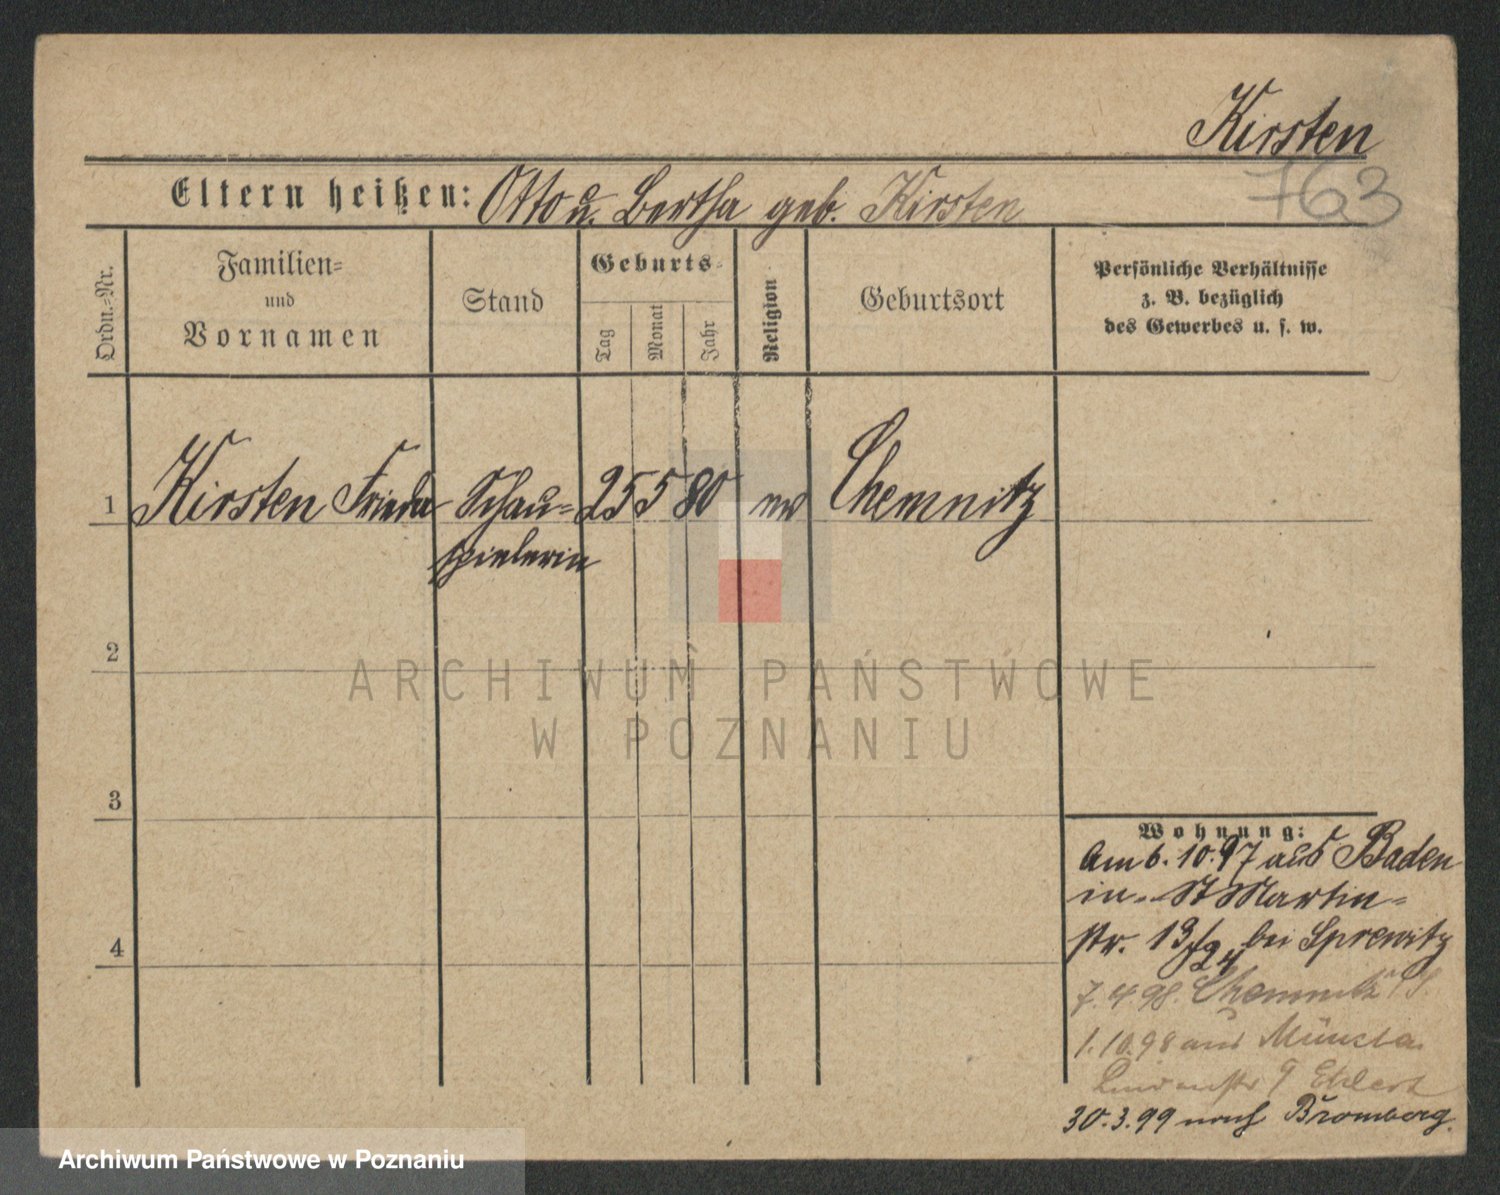 Kirsten
763
Eltern heißen: Otto u. Bertha geb. Kirsten
Ordn.-Nr.
Familien-
und
Vornamen
Stand
Geburts-
Tag
Monat
Jahr
Religion
Geburtsort
Persönliche Verhältnisse
z. B. bezüglich
des Gewerbes u. s. w.
1 Kirsten Frieda Schau- 25 5 80 ev Chemnitz
spielerin
2
3
4
Wohnung:
Am 6. 10. 97 aus Baden
in St Martin-
str. 13/24 bei Sprewitz
7. 4. 98. Chemnitz
1. 10. 98 aus Münster
9 Ehlert
30. 3. 99 nach Bromberg.
ARCHIWUM PAŃSTWOWE
W POZNANIU
Archiwum Państwowe w Poznaniu